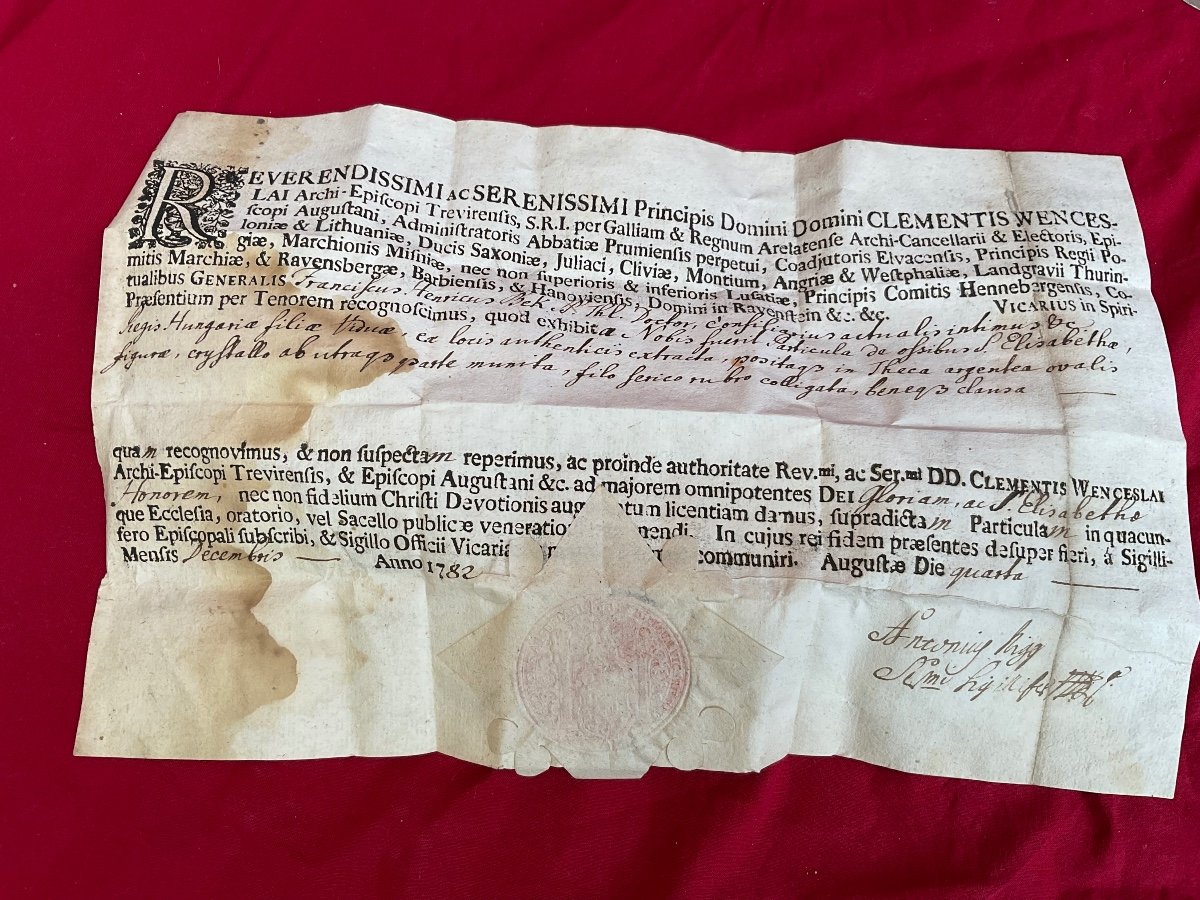 REVERENDISSIMI AC SERENISSIMI Principis Domini Domini CLEMENTIS WENCES-
LAI Archi-Episcopi Trevirensis, S.R.I. per Galliam & Regnum Arelatense Archi-Cancellarii & Electoris, Epi-
scopi Augustani, Administratoris Abbatiæ Prumiensis perpetui, Coadjutoris Elvacensis, Principis Regii Po-
loniæ & Lithuaniæ, Ducis Saxoniæ, Juliaci, Cliviæ, Montium, Angriæ & Westphaliæ, Landgravii Thurin-
giæ, Marchionis Misniæ, nec non superioris & inferioris Lusatiæ, Principis Comitis Hennebergensis, Co-
mitis Marchiæ, & Ravensbergæ, Barbiensis, & Hanoviensis, Domini in Ravenstein &c. &c. VICARIUS in Spiri-
tualibus GENERALIS Franciscus Henricus Beck, S. Thl. Doctor, Consiliarius actualis intimus &c.
Præsentium per Tenorem recognoscimus, quod exhibitæ Nobis fuerit Particula de ossibus S. Elisabethæ,
Regis Hungariæ filiæ Viduæ, ex locis authenticis extracta, positaqȝ in Theca argentea ovalis
figuræ, crystallo ab utraqȝ parte munita, filo serico rubro colligata, beneqȝ clausa
quam recognovimus, & non suspectam reperimus, ac proinde authoritate Rev.mi, ac Ser.mi DD. CLEMENTIS WENCESLAI
Archi-Episcopi Trevirensis, & Episcopi Augustani &c. ad majorem omnipotentes DEI Gloriam, ac S. Elisabethæ
Honorem, nec non fidelium Christi Devotionis aug tum licentiam damus, supradictam Particulam in quacun-
que Ecclesia, oratorio, vel Sacello publicæ veneratio nendi. In cujus rei fidem præsentes desuper fieri, à Sigilli-
fero Episcopali subscribi, & Sigillo Officii Vicaria communiri. Augustæ Die quarta
Mensis Decembris Anno 1782
Antonius Nigg
Ser.mi Sigillifer